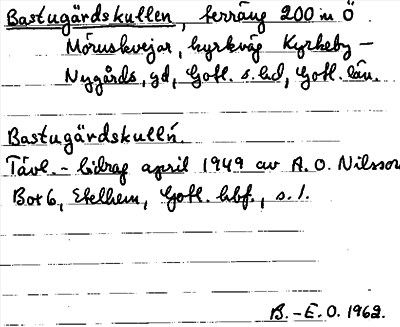 Bastugärdskullen, terräng 200 m Ö
Möruskvejar, kyrkväg Kyrkeby –
Nygårds, gd, Gotl. s. hd, Gotl. län.
Bastugärdskulln.
Tävl.- bidrag april 1949 av A. O. Nilsson
Box 6, Etelhem, Gotl. hbf., s. 1.
B.-E. O. 1962.